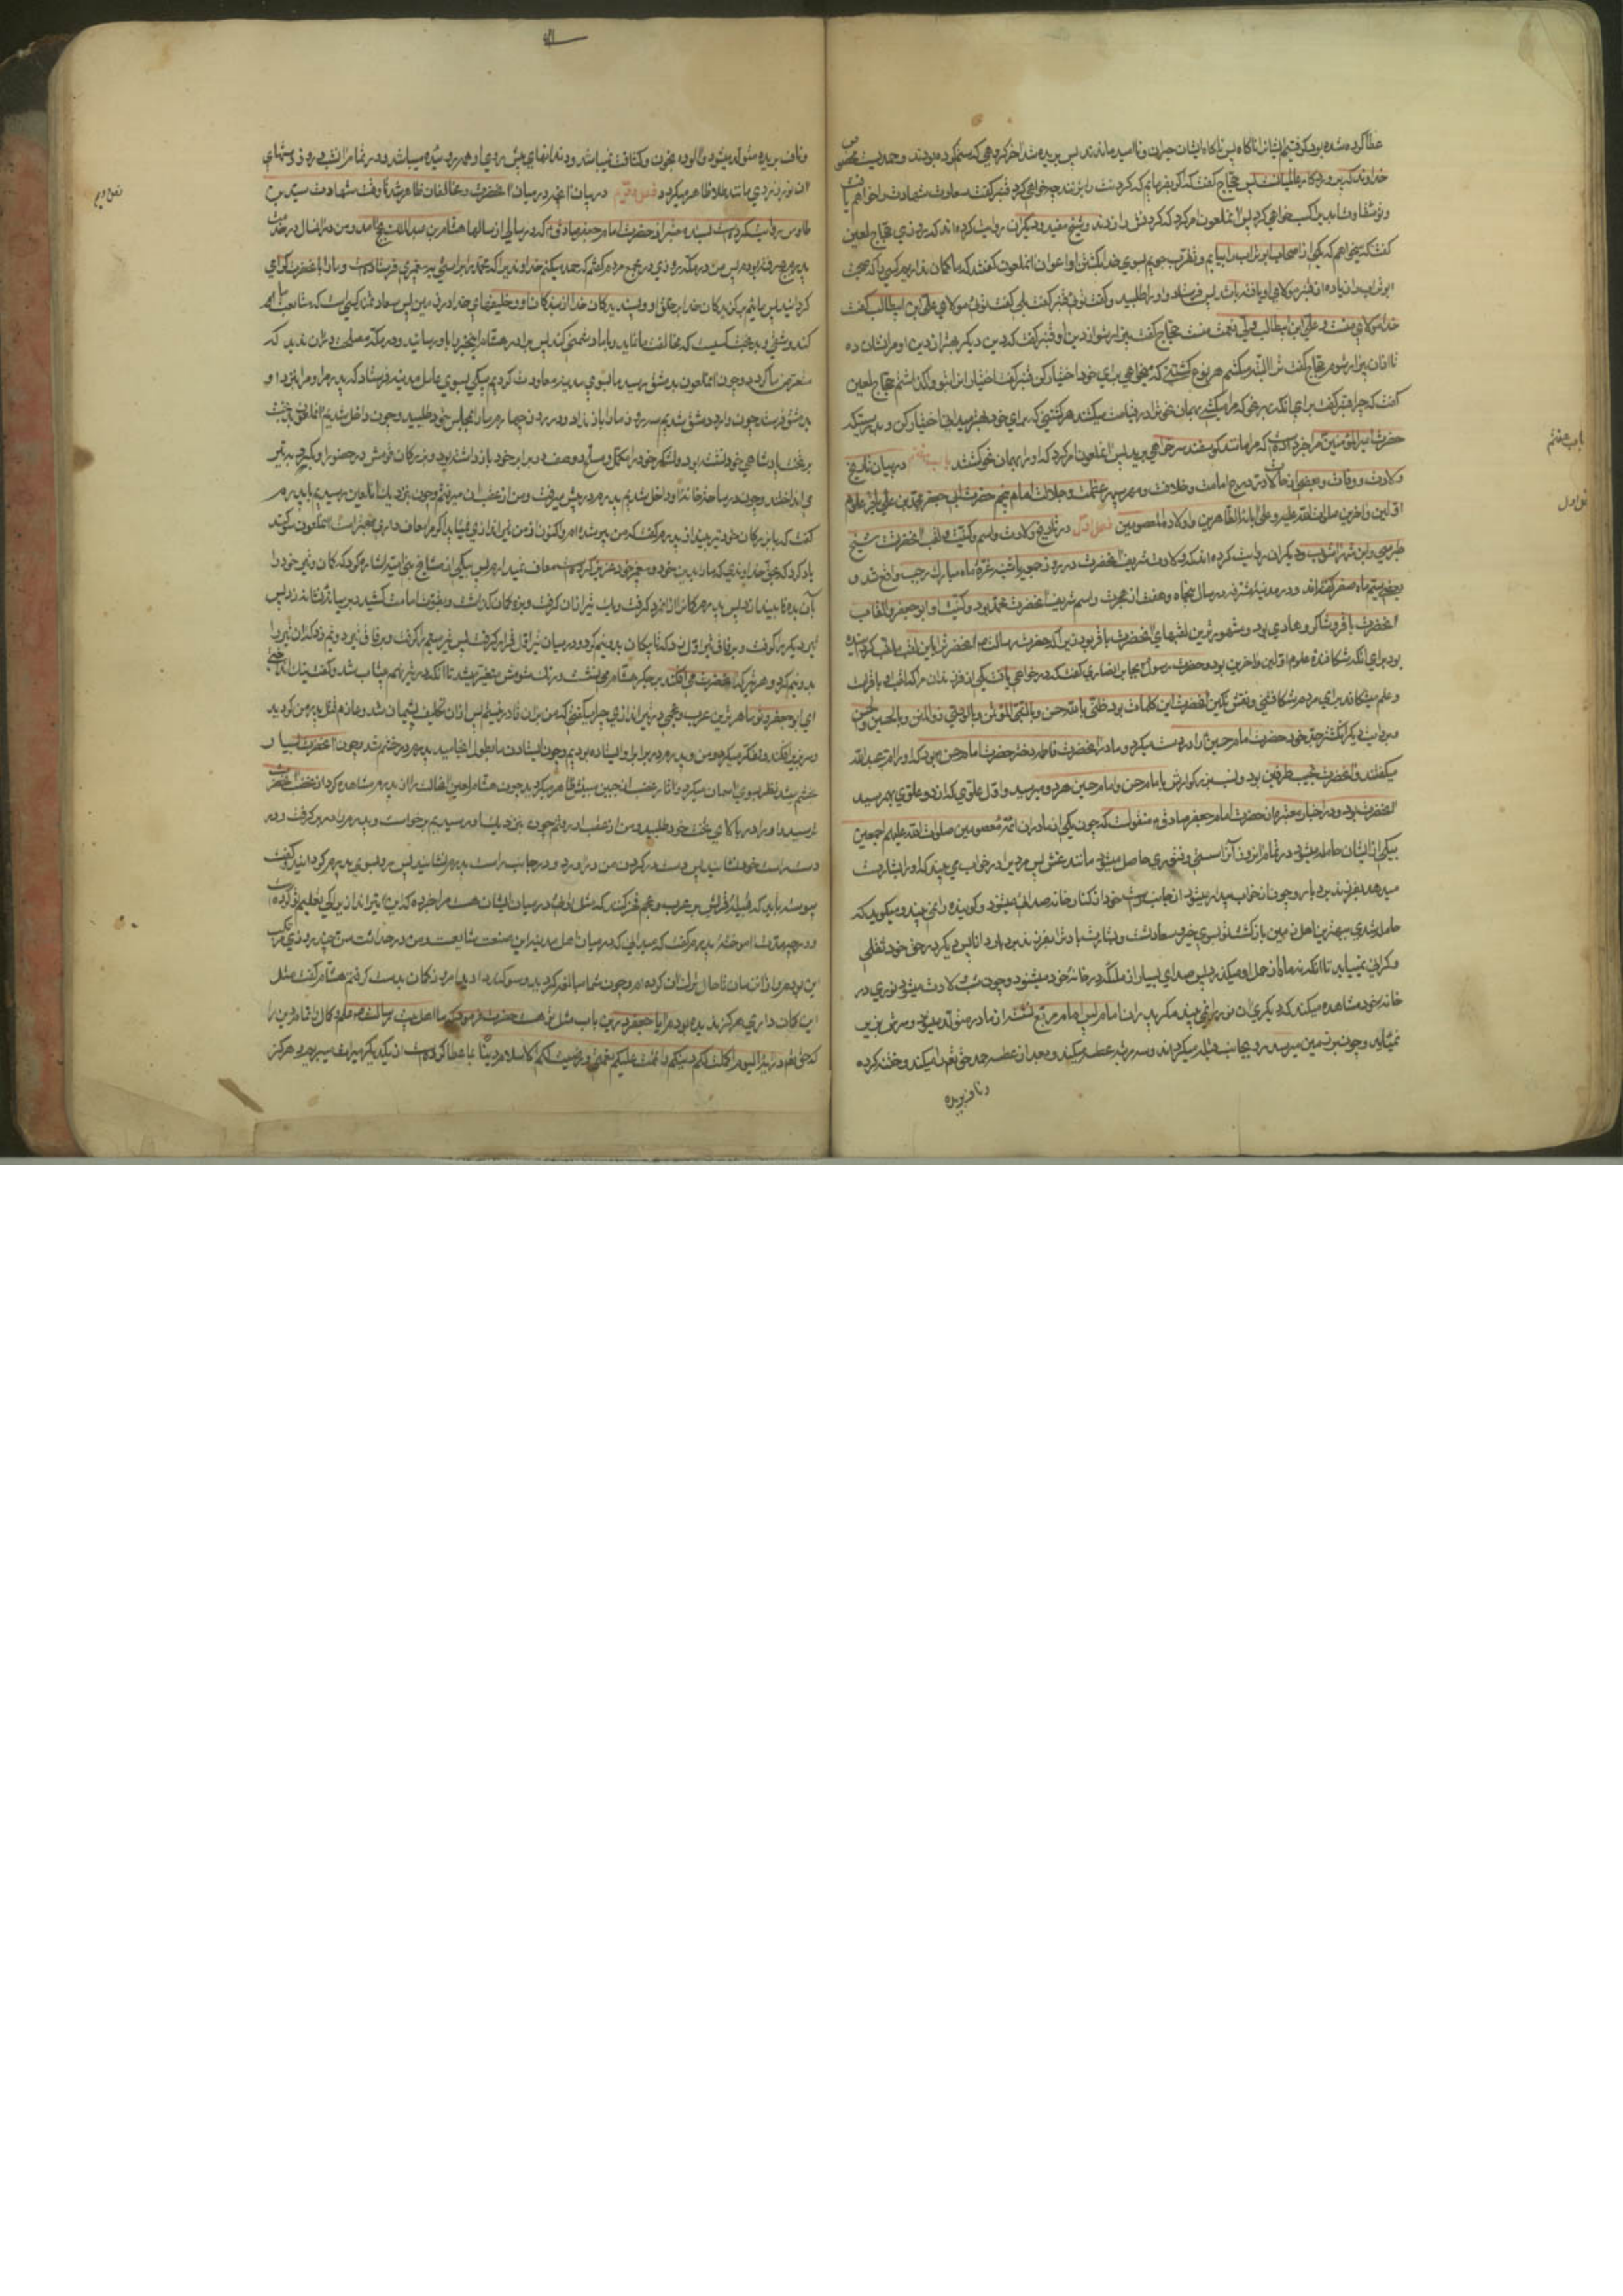 عطا کرده شده بود گرفتیم ایشانرا ناگاه پس ناگاه ایشان حیران و ناامید ماندند پس بریده شد آخر گروهی که ستم کرده بودند و حمد
خداوند که پروردگار عالمیانست پس حجاج گفت که اگر بفرمایم که گردنت را بزنند چه خواهی کرد قنبر گفت سعادت شهادت را خواهم یافت
و تو شقاوت ابد پس آن ملعون امر کرد که گردنش را زدند و شیخ مفید و دیگران روایت کرده اند که روزی حجاج لعین
گفت که میخواهم که یکی از اصحاب ابوتراب را بیابم و تقرب جویم بسوی خدا بکشتن او اعوان آن ملعون گفتند که ما گمان نداریم کسی را که صحبت
ابوتراب را زیاده از قنبر مولای او یافته باشد پس فرستاد و او را طلبید و گفت توئی قنبر گفت بلی گفت توئی مولای علی ابن ابیطالب گفت
خدا مولای منست و علی ابن ابیطالب ولی نعمت منست حجاج گفت بیزار شو از دین او قنبر گفت که دین دیگر بهتر از دین او مرا نشان ده
تا از آن بیزار شوم حجاج گفت ترا البته میکشم هر نوع کشتنی که میخواهی برای خود اختیار کن قنبر گفت اختیار را بتو گذاشتم حجاج لعین
گفت که چرا قنبر گفت برای آنکه بهر نحو که مرا میکشی بهمان نحو ترا در قیامت میکشند هر کشتنی که برای خود بهتر میدانی اختیار کن و بدرستیکه
حضرت امیر المؤمنین مرا خبر داده است که مرا مانند گوسفند سر خواهی برید پس آن ملعون امر کرد که او را بهمان نحو کشتند باب هفتم در بیان تاریخ
ولادت و وفات و بعضی از حالات در درج امامت و خلافت و مهر سپهر عظمت و جلالت امام پنجم حضرت ابی جعفر محمد بن علی باقر علوم
اولین و آخرین صلوات الله علیه و علی آبائه الطاهرین و اولاده المعصومین فصل اول در تاریخ ولادت و اسم و کنیت و لقب آنحضرت شیخ
طبرسی و ابن شهرآشوب و دیگران روایت کرده اند که ولادت شریف آنحضرت در روز جمعه یا شنبه غره ماه مبارک رجب واقع شد و
بعضی سیم ماه صفر گفته اند و در مدینه مشرفه در سال پنجاه و هفت از هجرت و اسم شریف آنحضرت محمد بود و کنیت او ابو جعفر و القاب
آنحضرت باقر و شاکر و هادی بود و مشهورترین لقبهای آنحضرت باقر بود زیرا که حضرت رسالت ص آنحضرت را باین لقب ملقب گردانیده
بود برای آنکه شکافنده علوم اولین و آخرین بود و حضرت رسول بجابر انصاری گفت که در خواهی یافت یکی از فرزندان مرا که لقب او باقر است
و علم میشکافد برای مردم شکافتنی و نقش نگین آنحضرت این کلمات بود ظنی بالله حسن و بالنبی المؤتمن و بالوصی ذو المنن و بالحسین و الحسن
و بروایت دیگر انگشتر جد خود حضرت امام حسین را در دست میکرد و مادر آنحضرت فاطمه دختر حضرت امام حسن بود که او را ام عبد الله
میگفتند و آنحضرت نجیب طرفین بود و نسب بزرگوارش بامام حسن و امام حسین هر دو میرسید و اول علوی که از دو علوی بهم رسید
آنحضرت بود و در اخبار معتبره از حضرت امام جعفر صادق ع منقولست که چون یکی از مادران ائمه معصومین صلوات الله علیهم اجمعین
بیکی از ایشان حامله میشود در تمام آنروز آنرا سستی و فتوری حاصل میشود مانند غش پس مردی را در خواب می بیند که او را بشارت
میدهد بفرزندی بردبار و چون از خواب بیدار میشود از جانب راست خود از کنار خانه صدائی میشنود و گوینده را نمی بیند و میگوید که
حامله شدی ببهترین اهل زمین بازگشت تو بسوی خیر و سعادتست و بشارت باد ترا بفرزند بردبار دانا پس دیگر در خود ثقلی
و گرانی نمییابد تا آنکه نه ماه از حمل او میگذرد پس صدای بسیار از ملائکه در خانه خود میشنود و چون شب ولادت میشود نوری در
خانه خود مشاهده میکند که دیگری آن نور را نمی بیند مگر پدر آن امام پس امام مربع نشسته از مادر متولد میشود و سرش بزیر
نمیآید و چون بر زمین میرسد رو بجانب قبله میگرداند و سه مرتبه عطسه میکند و بعد از عطسه حمد حق تعالی میکند و ختنه کرده
و ناف بریده
باب هفتم
فصل اول
و ناف بریده متولد میشود و آلوده بخون و کثافت نمیباشد و دندانهای پیش روی او همه روئیده میباشد و در تمام آن شب و روز از دستهای
او نور زردی مانند طلا ظاهر میگردد فصل دویم در بیان آنچه در میان آنحضرت و مخالفان ظاهر شد تا وقت شهادت سید بن
طاوس روایت کرده است بسند معتبر از حضرت امام جعفر صادق ع که در سالی از سالها هشام بن عبد الملک بحج آمد و من در آنسال در خدمت
پدرم بحج رفته بودم پس من در مکه روزی در مجمع مردم گفتم که حمد میکنم خداوندیرا که محمد را براستی به پیغمبری فرستاده است و ما را بآنحضرت گرامی
گردانید پس مائیم برگزیدگان خدا بر خلق او و پسندیدگان خدا از بندگان او و خلیفهای خدا در زمین پس سعادتمند کسی است که متابعت ما
کند و شقی و بدبخت کسیست که مخالفت ما نماید و با ما دشمنی کند پس برادر هشام این خبر را باو رسانید و در مکه مصلحت در آن ندید که
متعرض ما گردد و چون آن ملعون بدمشق رسید ما بسوی مدینه معاودت کردیم پیکی بسوی عامل مدینه فرستاد که پدرم را و مرا بنزد او
بدمشق فرستد چون وارد دمشق شدیم سه روز ما را بار نداد و در روز چهارم ما را بمجلس خود طلبید و چون داخل شدیم آن لعین بر تخت
پادشاهی خود نشسته بود و لشکر خود را مکمل و مسلح دو صف در برابر خود باز داشته بود و بزرگان قومش در حضور او گرو به تیر
می انداختند و چون در ساحت خانه او داخل شدیم پدرم در پیش میرفت و من از عقب او میرفتم و چون بنزدیک آن لعین رسیدیم با پدرم
گفت که با بزرگان خود تیر بینداز پدرم گفت که من پیر شده ام و اکنون از من تیراندازی نمی آید اگر مرا معاف داری بهتر است آن ملعون سوگند
یاد کرد که بحق خداوندی که ما را بدین خود و پیغمبر خود عزیز گردانیده است معاف نمیدارم پس بیکی از مشایخ بنی امیه اشاره کرد که کمان و تیر خود را
بآن بده تا بیندازد پس پدرم کمانرا از آنمرد گرفت و یک تیر از آن گرفت و بزه کمان گذاشت و بقوت امامت کشید و بر میان نشانه زد پس
تیر دیگر گرفت و بر فاق تیر اول زد
ای ابو جعفر تو ماهرترین عرب و عجمی در تیراندازی چرا میگفتی که من بر آن قادر نیستم پس از آن تکلیف پشیمان شد و عازم قتل پدر من گردید
و سر بزیر افکند و تفکر میکرد و من و پدرم در برابر او ایستاده بودیم و چون ایستادن ما بطول انجامید پدرم در خشم شد و چون آنحضرت بسیار
خشم میشد نظر بسوی آسمان میکرد و آثار غضب از جبین مبینش ظاهر میگردید چون هشام لعین آنحالت را از پدرم مشاهده کرد از غضب آنحضرت
ترسید و او را در بالای تخت خود طلبید و من از عقب او رفتم چون بنزدیک او رسیدیم برخاست و پدرم را در بر گرفت و در
دست راست خود نشانید پس دست در گردن من در آورد و در جانب راست پدرم نشانید پس رو بسوی پدرم گردانید و گفت
پیوسته باید که قبیله قریش بر عرب و عجم فخر کنند که مثل توئی در میان ایشان هست مرا خبر ده که این تیراندازی را کی تعلیم تو کرده است
و در چه مدت آموخته پدرم گفت که میدانی که در میان اهل مدینه این صنعت شایعست و من در حداثت سن چند روزی مرتکب
این بودم و از آن زمان تا حال ترک آن کرده ام و چون شما مبالغه کردید و سوگند دادید امروز کمان بدست گرفتم هشام گفت مثل
این کمانداری هرگز ندیده بودم آیا جعفر در این باب مثل تو هست حضرت فرمود که ما اهل بیت رسالت علم و کمال و تمام دین را
که حق تعالی در آیه الیوم اکملت لکم دینکم و اتممت علیکم نعمتی و رضیت لکم الاسلام دینا بما عطا کرده است از یکدیگر میراث میبریم و هرگز
فصل دویم